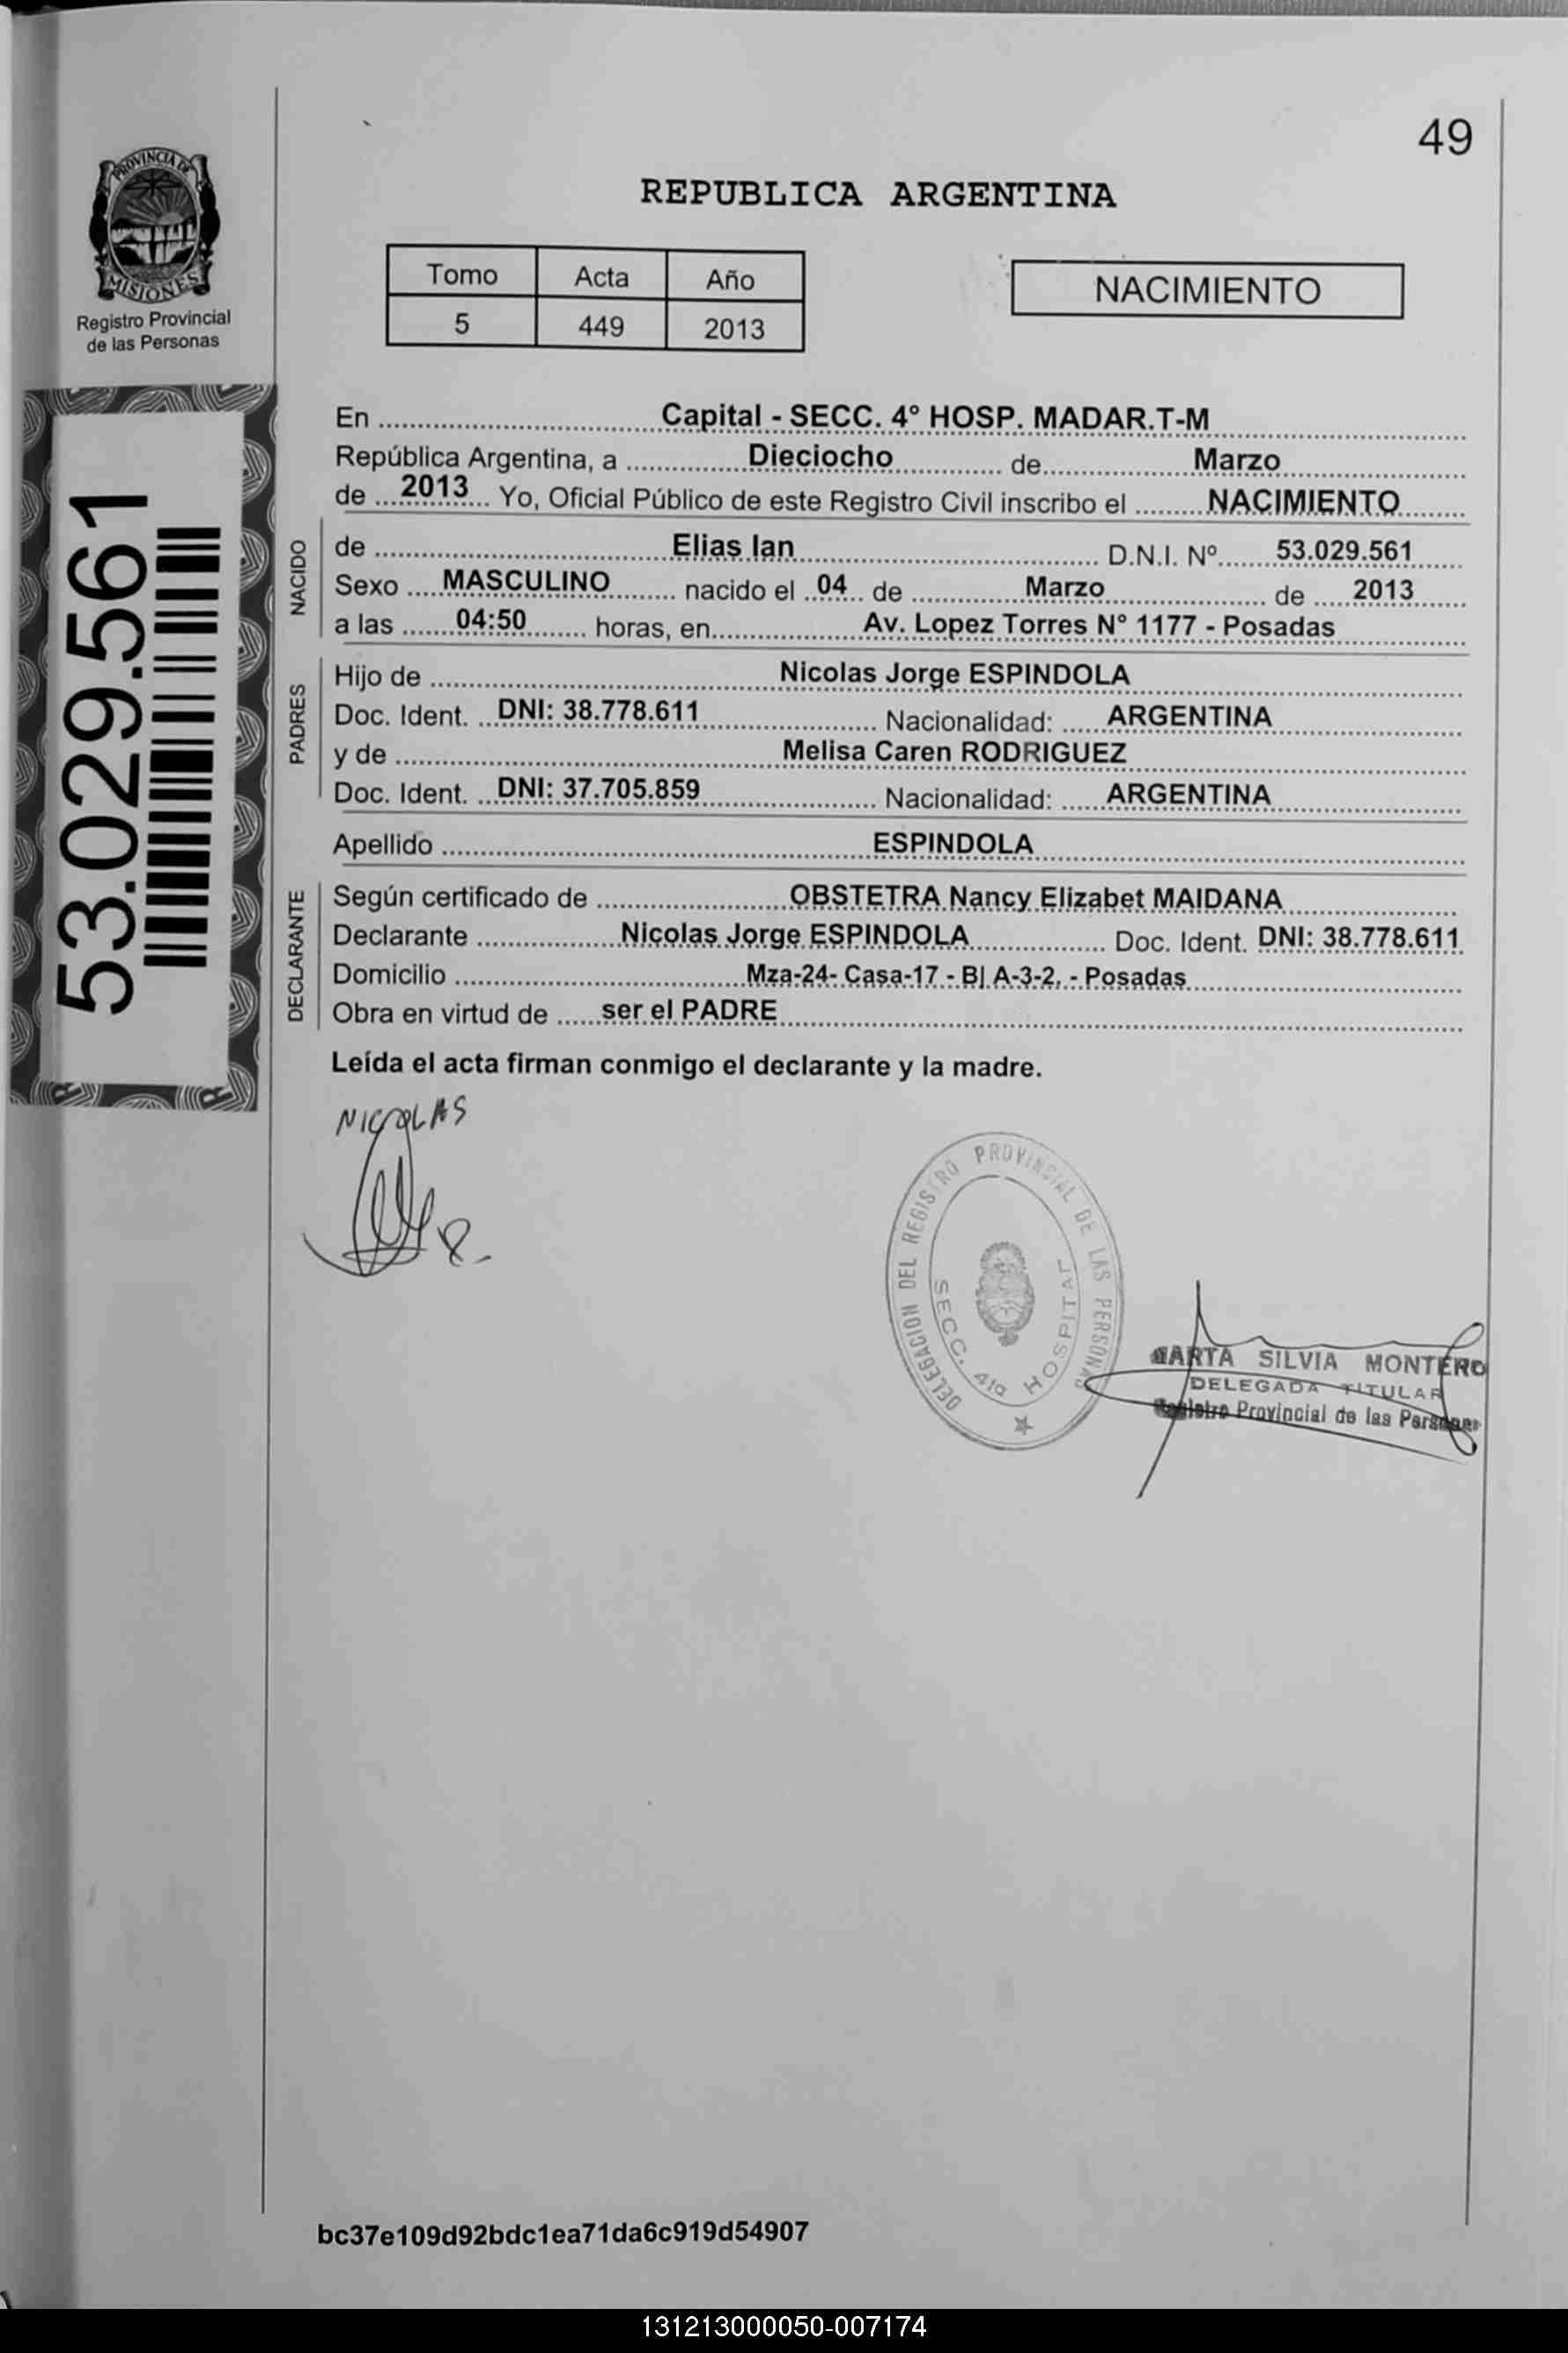 49
PROVINCIA DE
MISIONES
Registro Provincial
de las Personas
REPUBLICA ARGENTINA
Tomo Acta Año
5 449 2013
NACIMIENTO
53.029.561
En Capital - SECC. 4° HOSP. MADAR.T-M
República Argentina, a Dieciocho de Marzo
de 2013 Yo, Oficial Público de este Registro Civil inscribo el NACIMIENTO
NACIDO
de Elias Ian D.N.I. Nº 53.029.561
Sexo MASCULINO nacido el 04 de Marzo de 2013
a las 04:50 horas, en Av. Lopez Torres N° 1177 - Posadas
PADRES
Hijo de Nicolas Jorge ESPINDOLA
Doc. Ident. DNI: 38.778.611 Nacionalidad: ARGENTINA
y de Melisa Caren RODRIGUEZ
Doc. Ident. DNI: 37.705.859 Nacionalidad: ARGENTINA
Apellido ESPINDOLA
DECLARANTE
Según certificado de OBSTETRA Nancy Elizabet MAIDANA
Declarante Nicolas Jorge ESPINDOLA Doc. Ident. DNI: 38.778.611
Domicilio Mza-24- Casa-17 - B| A-3-2. - Posadas
Obra en virtud de ser el PADRE
Leída el acta firman conmigo el declarante y la madre.
NICOLAS
DELEGACION DEL REGISTRO PROVINCIAL DE LAS PERSONAS
SECC. 4ta HOSPITAL
MARTA SILVIA MONTERO
DELEGADA TITULAR
Registro Provincial de las Personas
bc37e109d92bdc1ea71da6c919d54907
131213000050-007174